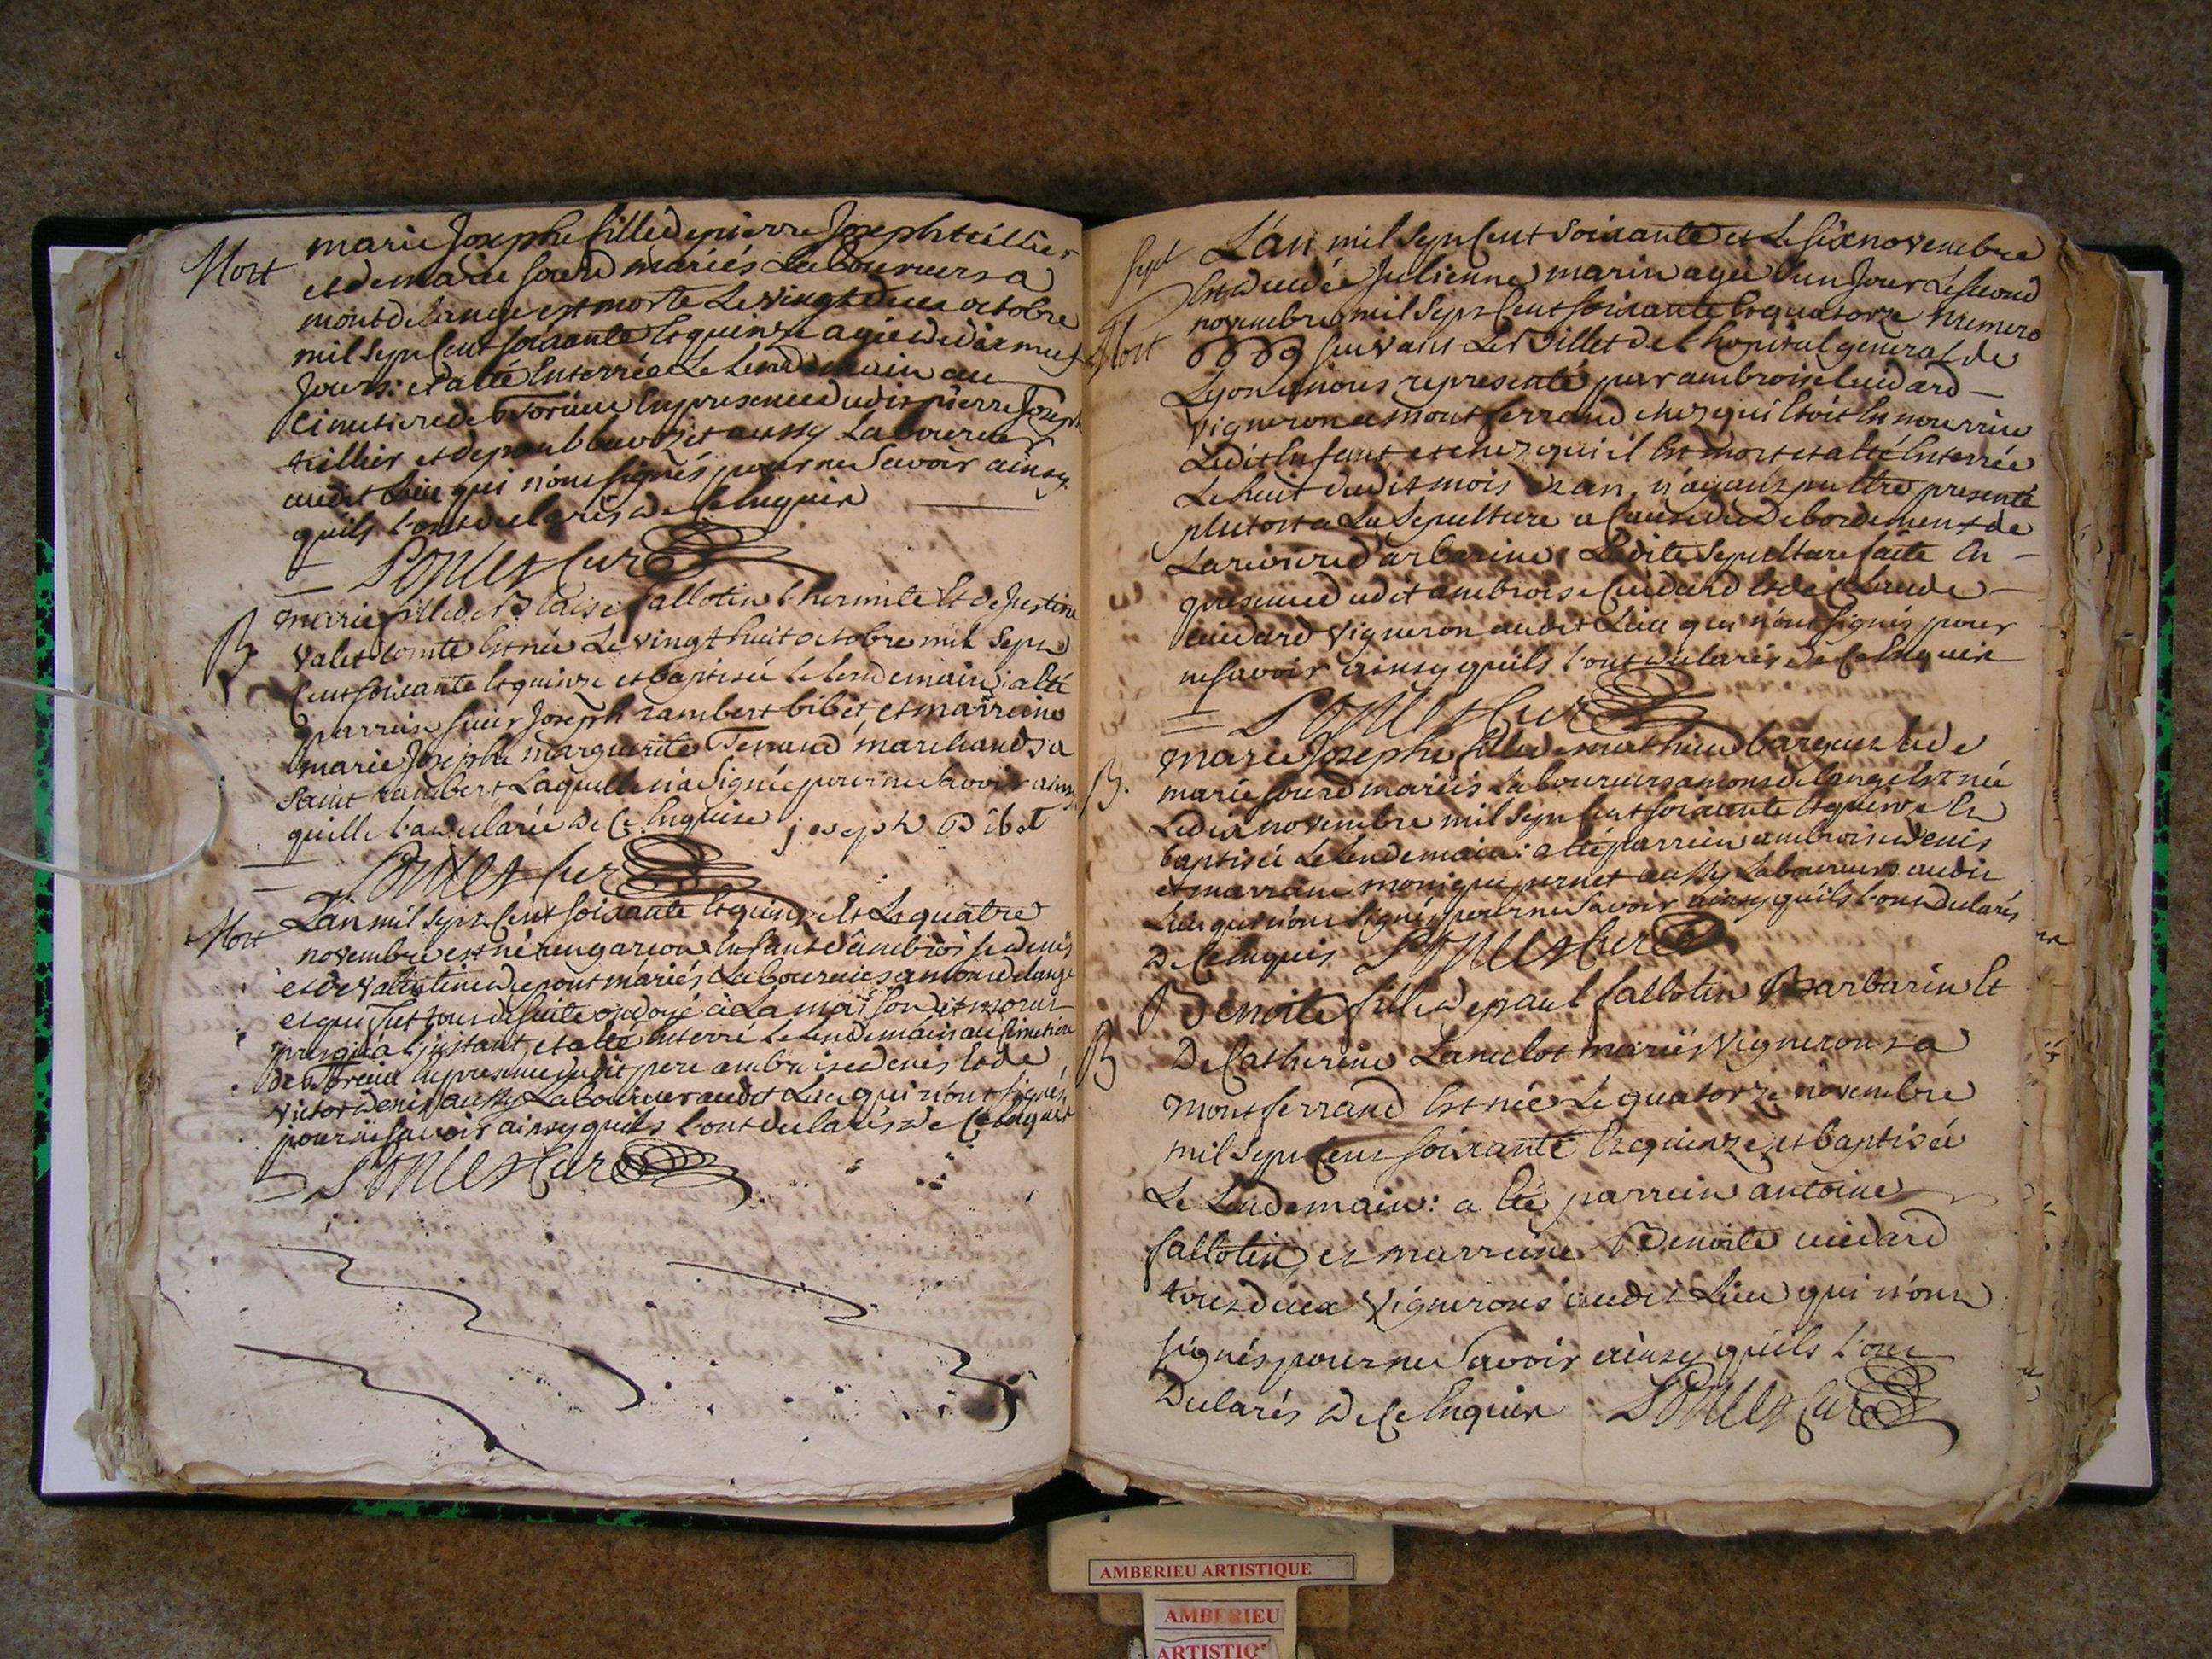 Mort
marie Josephe fille de pierre Joseph teillier
et de marie sourd mariés Laboureurs a
montdelange est morte Le vingt deux octobre
mil sept Cent soixante et quinze agée de dix neuf
Jours: et a été Enterrée Le Lendemain au
Cimetiere de Torcieu En presence dudit pierre Joseph
teillier et de paul aussy Laboureur
audit Lieu qui n'ont signés pour ne Savoir ainsy
qu'ils l'ont declarés de Ce Enquis
Curé
B
marie fille de Blaise fallotin Lhermite et de Justine
valet comte Est née Le vingt huit octobre mil Sept
Cent soixante et quinze et baptisée le lendemain: a été
parrein sieur Joseph rambert bibet, et marreine
marie Joseph marguerite Tenand marchands a
Saint rambert Laquelle n'a Signée pour ne Savoir ainsy
quelle l'a declarée de Ce Enquise joseph Bibet
Curé
Mort
L'an mil Sept Cent soixante et quinze et Le quatre
novembre est né un garcon Enfant d'ambroise denis
et de valentine dupont mariés Laboureurs a montdelange
et qui fut tout de suite ondoyé à La maison et mort
presqu'a l'instant, et a été Enterré Le lendemain au Cimetiere
de Torcieu En presence dudit pere ambroise denis et de
victor denis aussy Laboureur audit Lieu qui n'ont signés
pour ne savoir ainsy quils l'ont declarés de Ce Enquis
Curé
Sept
L'an mil Sept Cent Soixante et Le six novembre
Est decedée Julienne marin agée d'un Jour Le second
novembre mil Sept Cent soixante et quatorze numero
Mort
suivant Le Billet de l'hopital general de
Lyon a nous representé par ambroise cuidard
vigneron a montferrand chez qui Etoit En nourrice
Ledit Enfant et chez qui il Est mort et a été Enterrée
Le huit dudit mois et an, n'ayant pu Etre presenté
plutost a La Sepulture a Cause du debordement de
La riviere d'arbarine: Ladite Sepulture faite En
presence dudit ambroise Cuidard et de Claude
cuidard vigneron audit Lieu qui n'ont signés pour
ne savoir ainsy quils l'ont declarés de Ce Enquis
Curé
B.
marie Josephe fille de mathieu et de
marie sourd mariés Laboureurs a montdelange Est née
Le dix novembre mil Sept Cent soixante et quinze et
baptisée Le Lendemain: a été parrein ambroise denis
et marreine monique pernet aussy Laboureurs audit
Lieu qui n'ont Signés pour ne Savoir ainsy qu'ils l'ont declarés
de Ce Enquis Curé
B
Benoite fille de paul fallotin Barbarin et
de Catherine Lancelot mariés vignerons a
montferrand Est née Le quatorze novembre
mil Sept Cent soixante et quinze et baptisée
Le Lendemain: a été parrein antoine
fallotin, et marreine Benoite cuidard
tous deux vignerons audit Lieu qui n'ont
signés pour ne Savoir ainsy qu'ils l'ont
declarés de Ce Enquis Curé
AMBERIEU ARTISTIQUE
AMBERIEU
ARTISTIQ